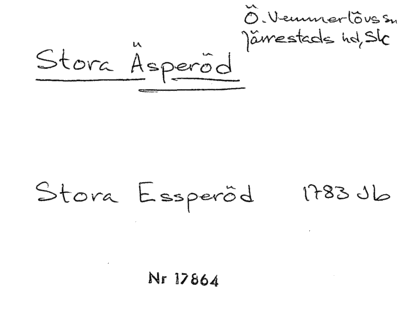 Ö. Vemmerlövs sn
Järrestads hd, Sk
Stora Äsperöd
Stora Essperöd 1783 Jb
Nr 17864